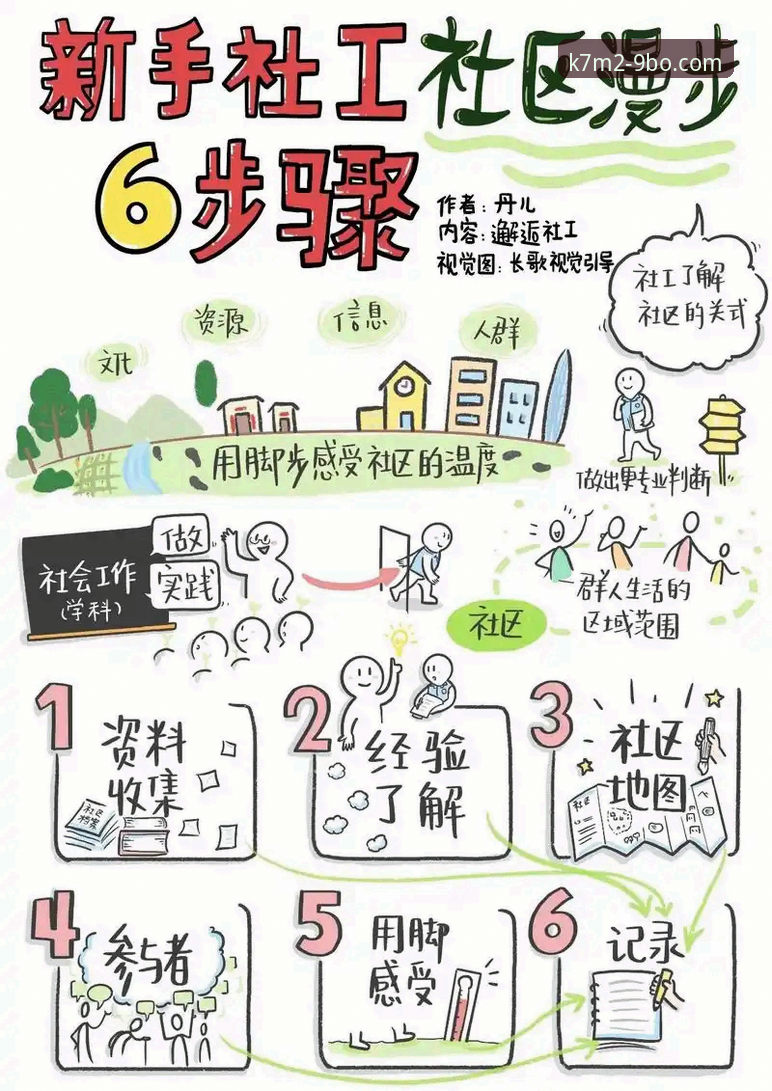 新手社工社区漫步
k7m2-9bo.com
6步骤
作者：丹儿
内容：邂逅社工
视觉图：长歌视觉引导
社工了解
社区的关式
资源
信息
人群
用脚步感受社区的温度
做出更专业判断
社会工作
(学科)
做
实践
社区
群人生活的
区域范围
1
资料
收集
社区
档案
2
经验
了解
3
社区
地图
社区
4
参与者
5
用脚
感受
6
记录